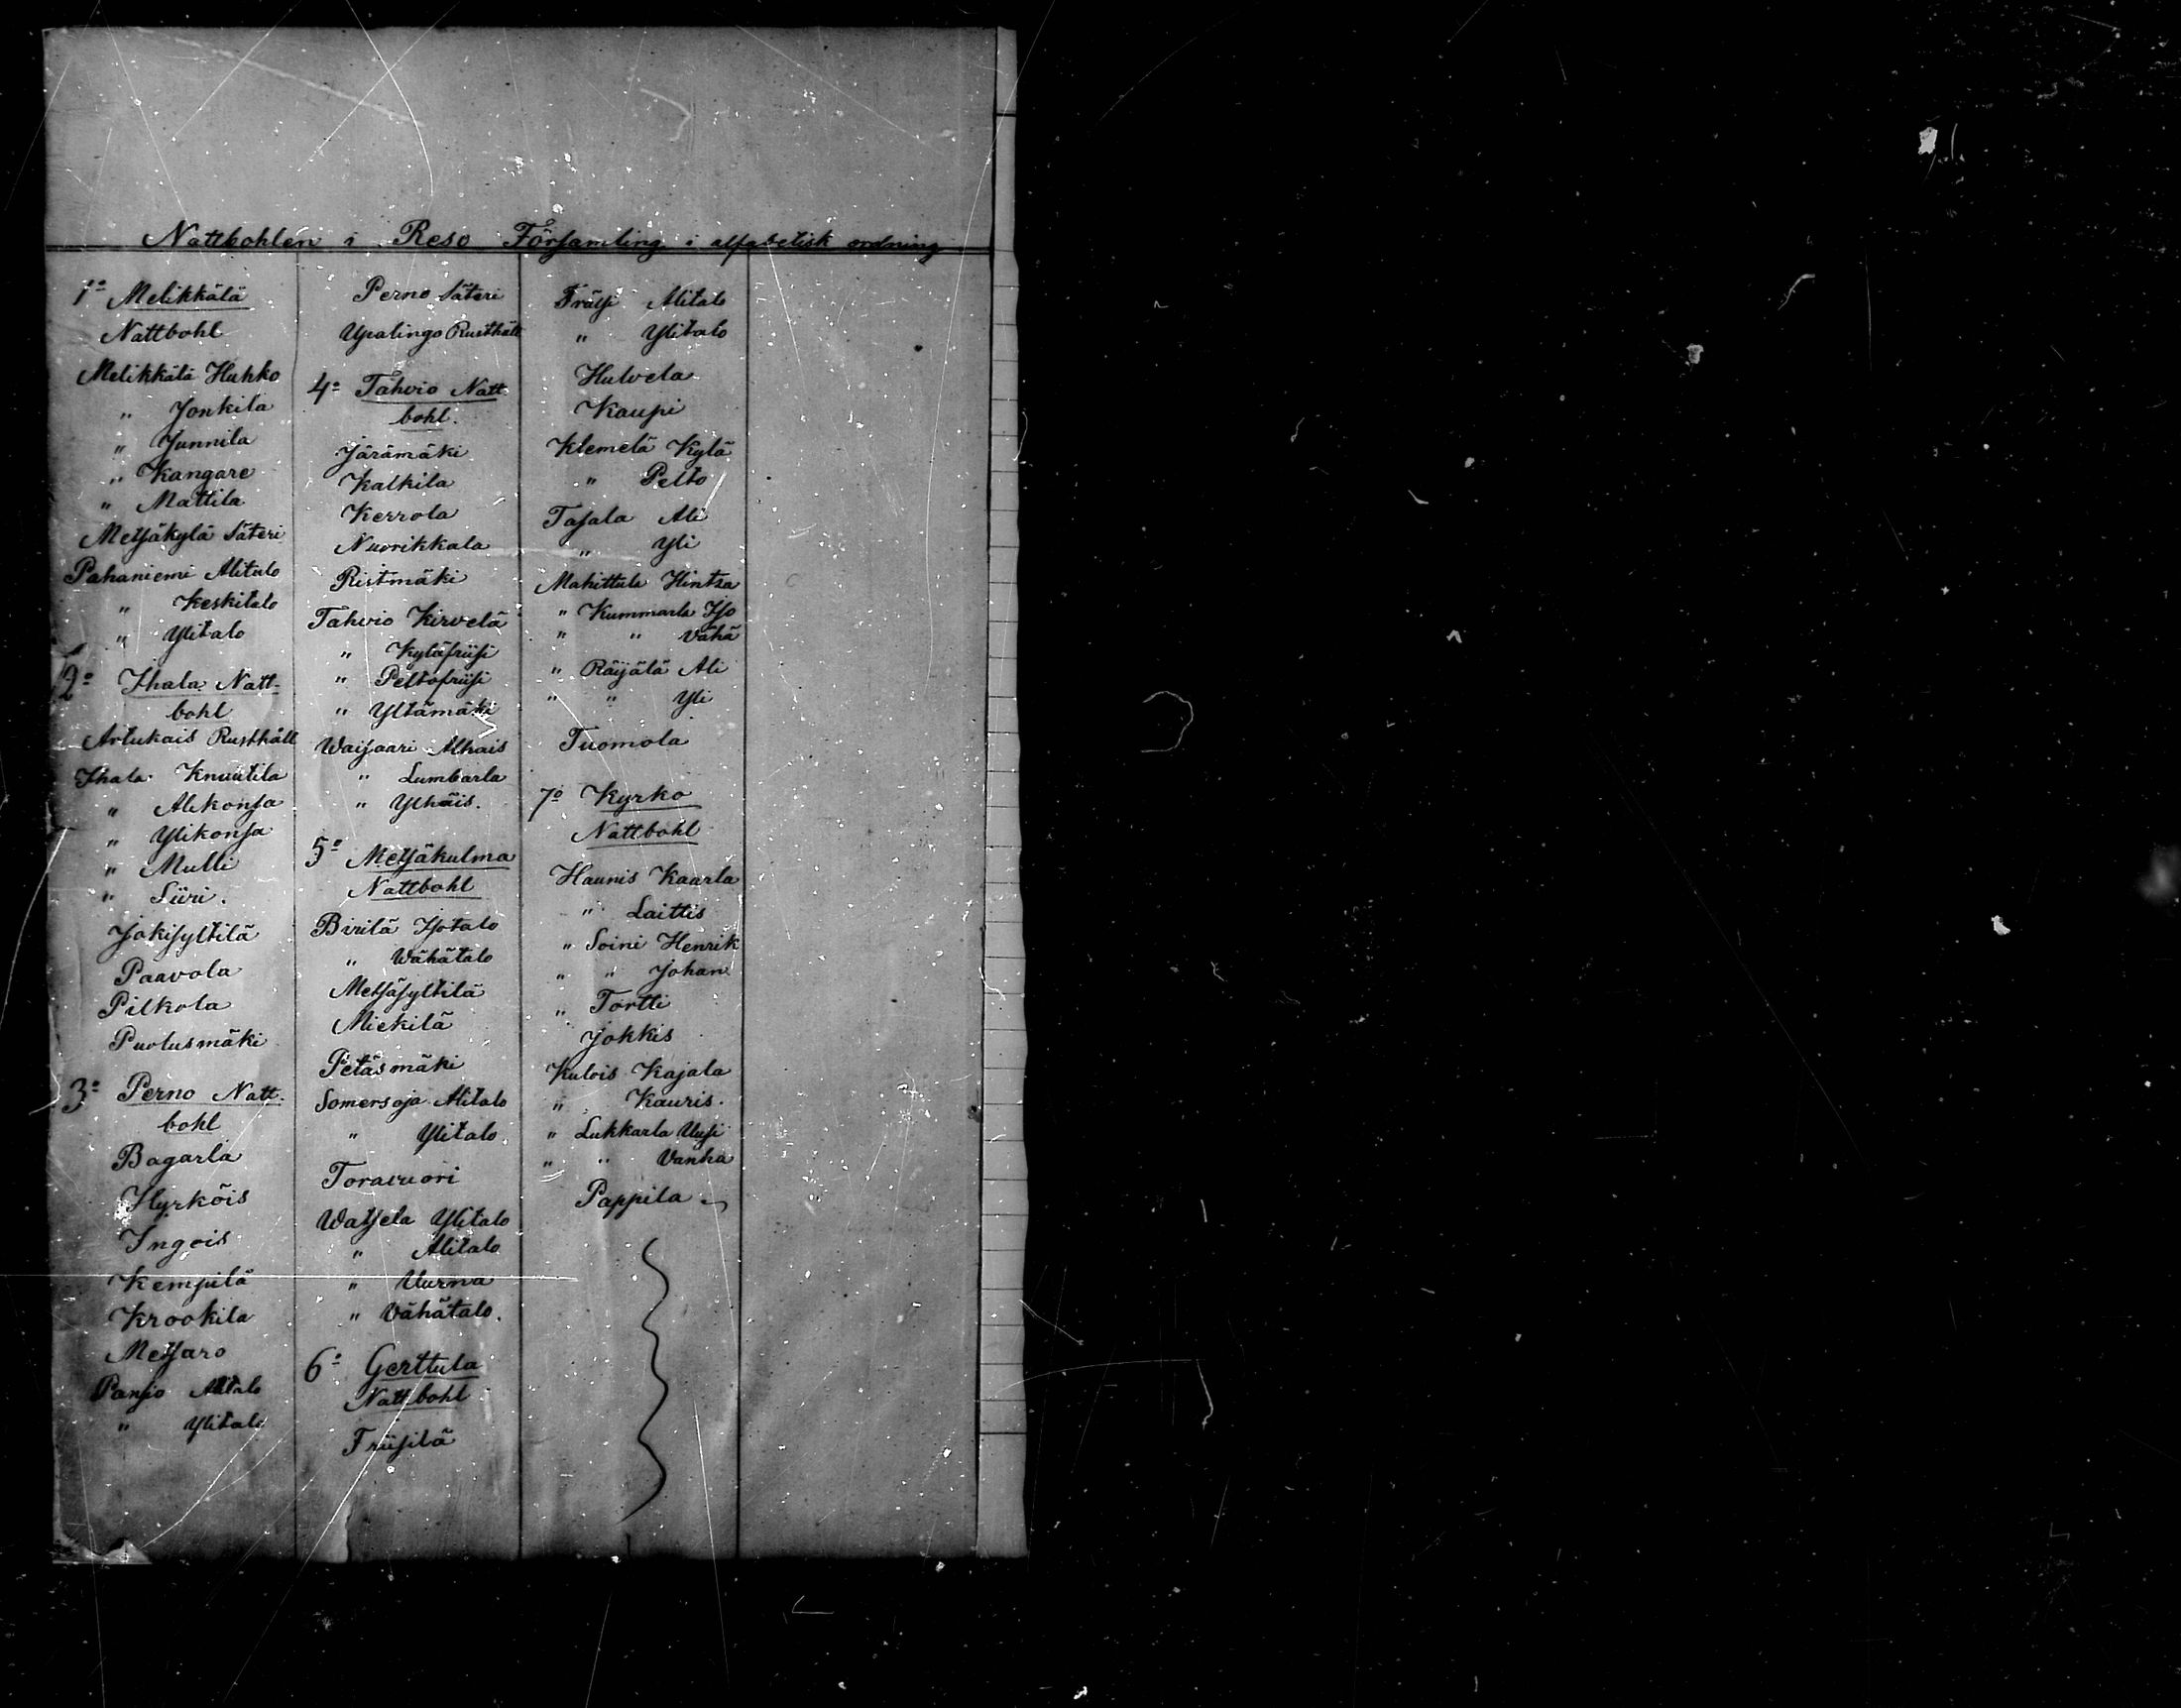 Nattbohlen i Reso Församling i alfabetisk ordning
1º Melikkälä
Nattbohl
Melikkälä Huhko
" Jonkila
" Junnila
" Kangare
" Mattila
Metsäkylä Säteri
Pahaniemi Alitalo
" Keskitalo
" Ylitalo
2º Ihala Natt-
bohl
Artukais Rusthåll
Ihala Knuutila
" Alikonsa
" Ylikonsa
" Mulli
" Siiri.
Jokisyltilä
Paavola
Pilkola
Puolusmäki
3º Perno Natt-
bohl
Bagarla
Hyrköis
Ingois
Kempilä
Krookila
Metsaro
Pansio Alitalo
" Ylitalo
Perno Säteri
Upalingo Rusthåll
4º Tahvio Natt-
bohl.
Järämäki
Kalkila
Kerrola
Nuorikkala
Ristmäki
Tahvio Kirvelä
" Kyläfriisi
" Peltofriisi
" Yltämäki
Waisaari Alhais
" Lumbarla
" Ylhäis.
5º Metsäkulma
Nattbohl
Birilä Isotalo
" Wähätalo
Metsäsyltilä
Miekilä
Petäsmäki
Somersoja Alitalo
" Ylitalo
Toravuori
Watsela Ylitalo
" Alitalo
" Uurna
" Vähätalo.
6º Gerttula
Nattbohl
Friisilä
Fräsi Alitalo
" Ylitalo
Hulvela
Kaupi
Klemelä Kylä
" Pelto
Tasala Ali
" Yli
Mahittula Hintsa
" Kummarla Iso
" " Vähä
" Räijälä Ali
" " Yli
Tuomola
7º Kyrko
Nattbohl
Haunis Kaarla
" Laittis
" Soini Henrik
" " Johan
" Tortti
Jokkis
Kulois Kajala
" Kauris.
" Lukkarla Uusi
" " Vanha
Pappila